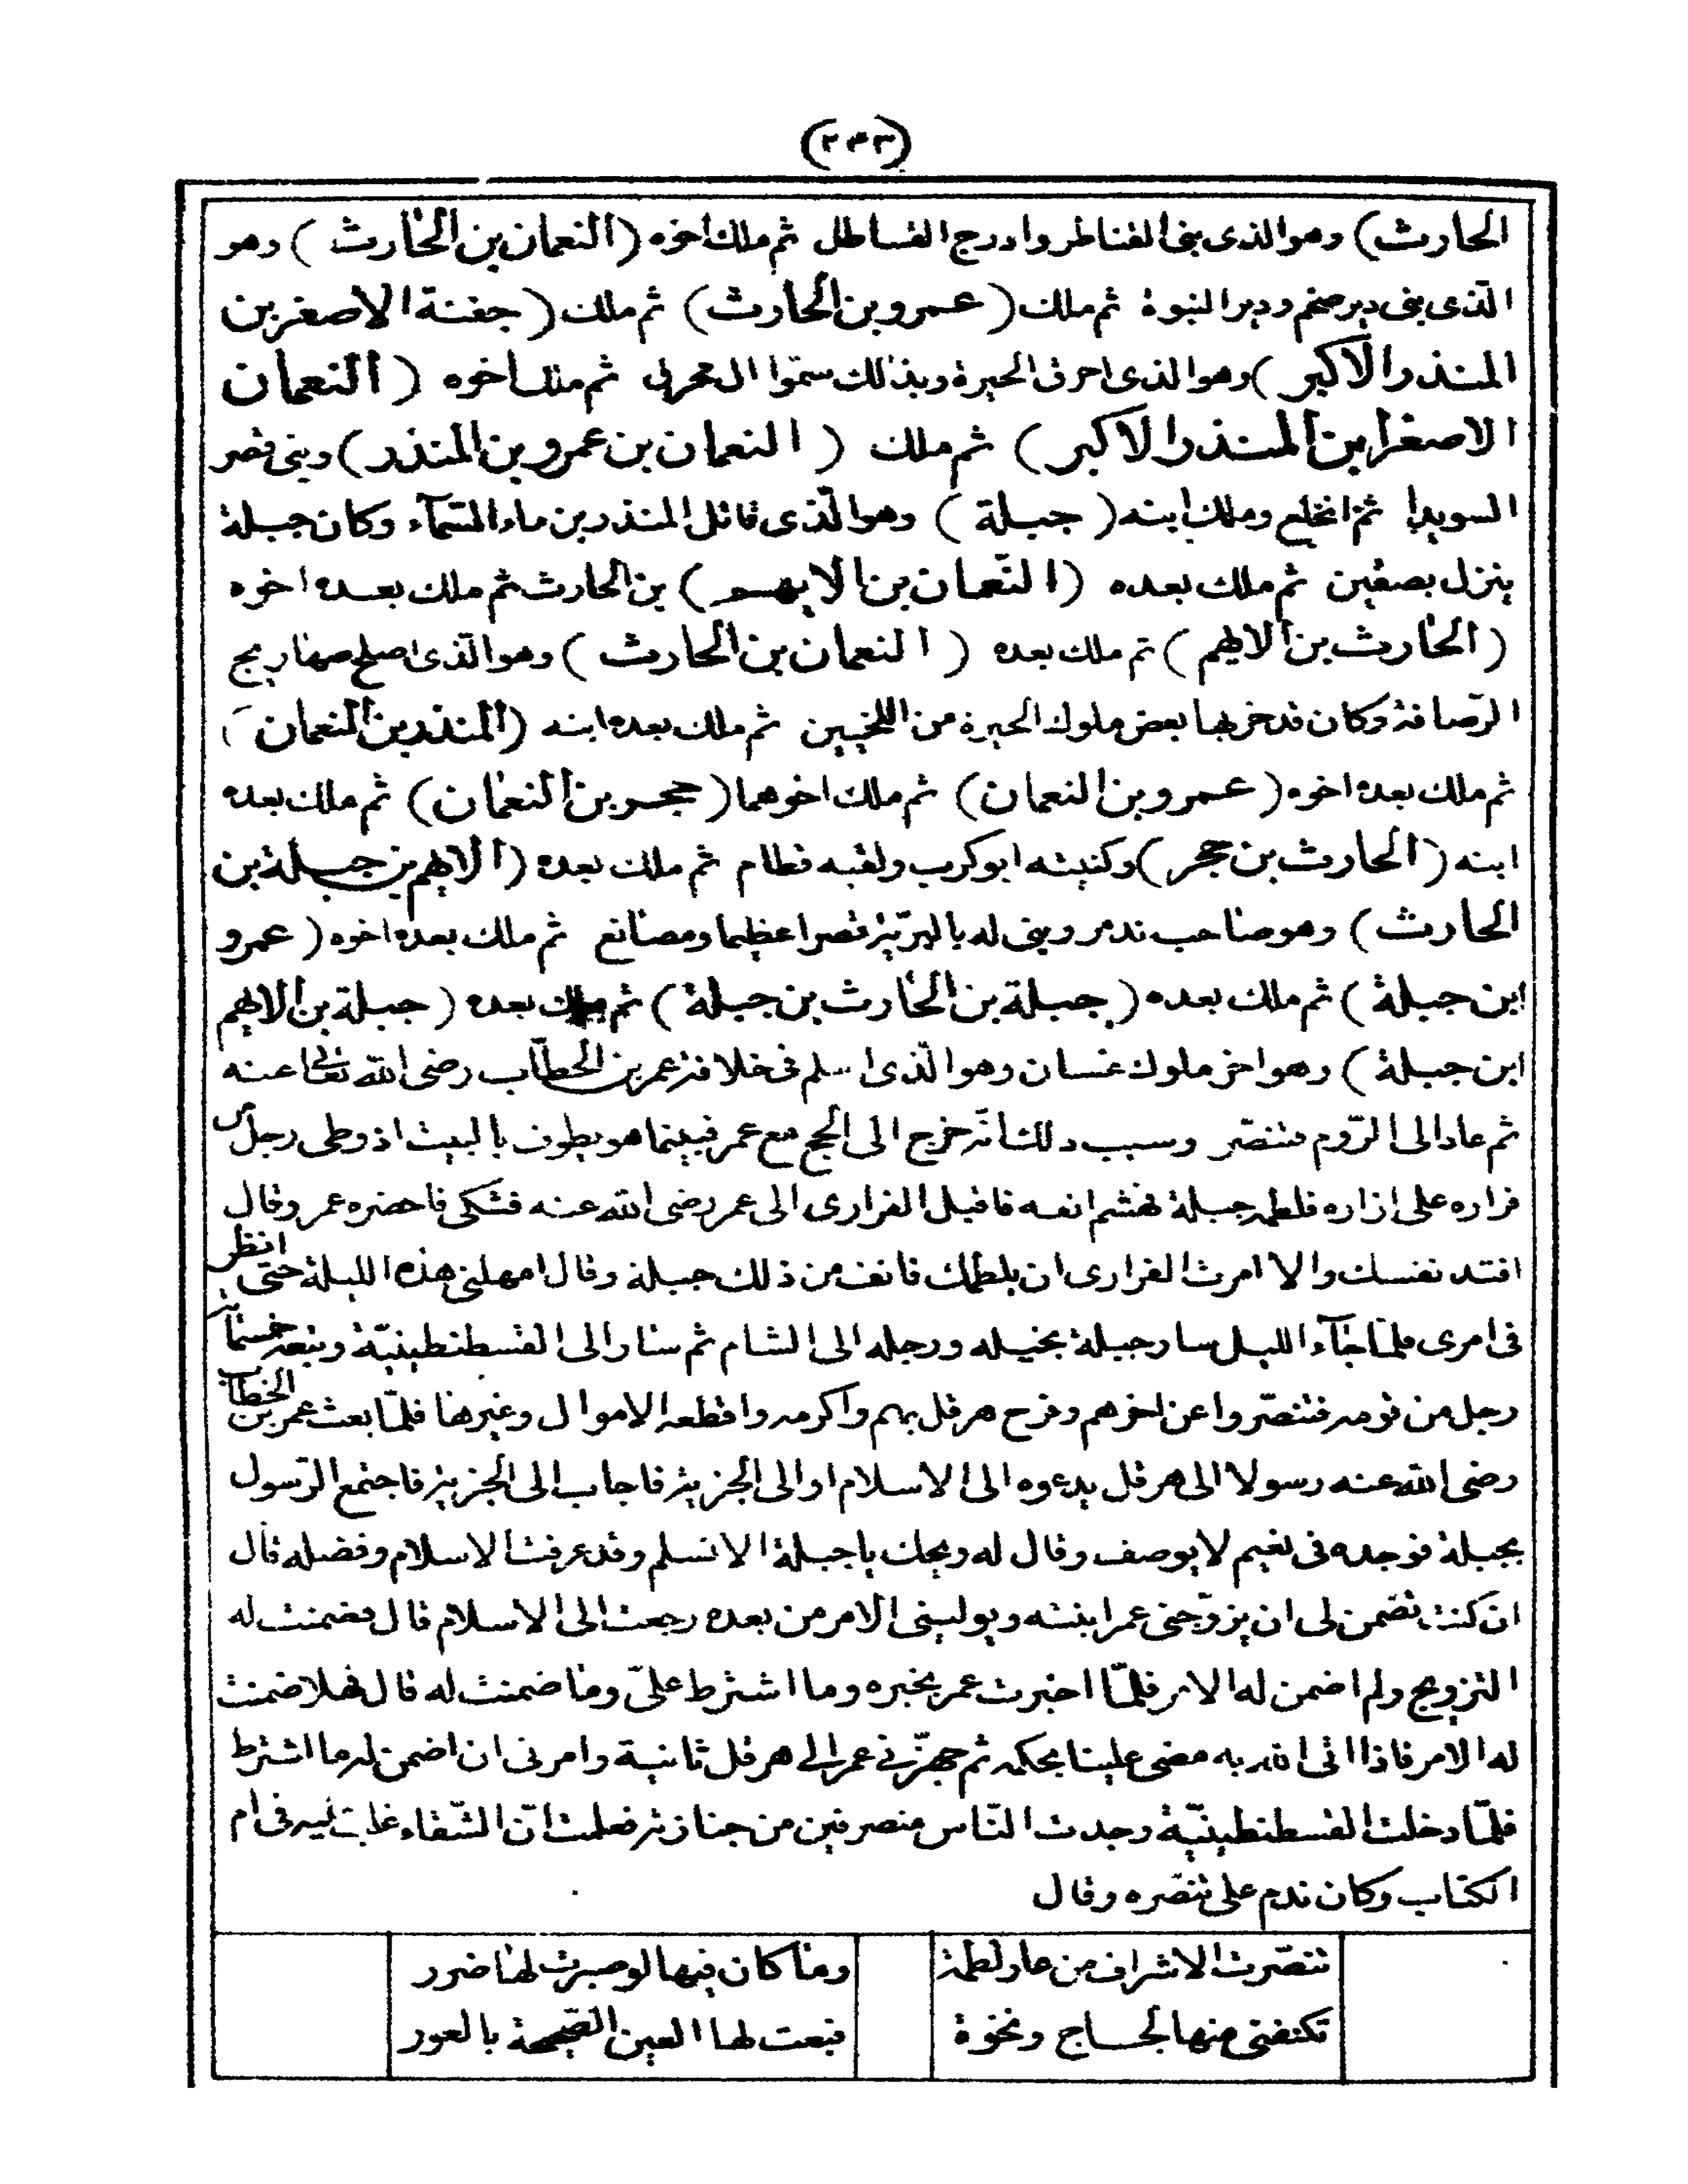 (٢٤٣)
الحارث) وهو الذى بنى القناطر وادرج القساطل ثم ملك اخوه (النعمان بن الحارث) وهو
الّذى بنى دير ضخم ودير النبوة ثم ملك (عمرو بن الحارث) ثم ملك (جفنة الاصغر بن
المنذر الاكبر) وهو الذى احرق الحيرة وبذلك سمّوا ال محرق ثم ملك اخوه (النعمان
الاصغر ابن المنذر الاكبر) ثم ملك (النعمان بن عمرو بن المنذر) وبنى قصر
السويدا ثم انخلع وملك ابنه (جبلة) وهو الّذى قاتل المنذر بن ماء السّمآء وكان جبلة
ينزل بصفين ثم ملك بعده (النّعمان بن الايهم) بن الحارث ثم ملك بعده اخوه
(الحارث بن الايهم) ثم ملك بعده (النعمان بن الحارث) وهو الّذى اصلح صهاريج
الرّصافة وكان قد خربها بعض ملوك الحيرة من اللخميين ثم ملك بعده ابنه (المنذر بن النعمان)
ثم ملك بعده اخوه (عمرو بن النعمان) ثم ملك اخوهما (حجر بن النعمان) ثم ملك بعده
ابنه (الحارث بن حجر) وكنيته ابو كرب ولقبه قطام ثم ملك بعده (الايهم بن جبلة بن
الحارث) وهو صاحب تدمر وبنى له بالبرّيّة قصرا عظيما ومصانع ثم ملك بعده اخوه (عمرو
ابن جبلة) ثم ملك بعده (جبلة بن الحارث بن جبلة) ثم ملك بعده (جبلة بن الايهم
ابن جبلة) وهو اخر ملوك غسان وهو الّذى اسلم فى خلافة عمر بن الخطّاب رضى الله تعالى عنه
ثم عاد الى الرّوم متنصّر وسبب ذلك انّه خرج الى الحج مع عمر فبينما هو يطوف بالبيت اذ وطى رجل من
فزاره على ازاره فلطمه جبلة فهشم انفه فاقبل الفزارى الى عمر رضى الله عنه فشكى فاحضره عمر وقال
افتد نفسك والا امرت الفزارى ان يلطمك فانف من ذلك جبلة وقال امهلنى هذه الليلة حتى انظر
فى امرى فلمّا جآء الليل سار جبلة بخيله ورجله الى الشام ثم سار الى القسطنطينيّة وتبعه خمسمائة
رجل من قومه فتنصّروا عن اخرهم وفرح هرقل بهم واكرمه واقطعه الاموال وغيرها فلمّا بعث عمر بن الخطاب
رضى الله عنه رسولا الى هرقل يدعوه الى الاسلام او الى الجزية فاجاب الى الجزية فاجتمع الرّسول
بجبلة فوجده فى نعيم لا يوصف وقال له ويحك يا جبلة الا تسلم وقد عرفت الاسلام وفضله قال
ان كنت تضمن لى ان يزوّجنى عمر ابنته ويولينى الامر من بعده رجعت الى الاسلام قال فضمنت له
التزويج ولم اضمن له الامر فلمّا اخبرت عمر بخبره وما اشترط علىّ وما ضمنت له قال فهلا ضمنت
له الامر فاذا اتى الله به مضى علينا بحكمه ثم جهّزنى عمر الى هرقل ثانية وامرنى ان اضمن له ما اشترط
فلمّا دخلت القسطنطينيّة وجدت النّاس منصرفين من جنازته فعلمت انّ الشّقاء غلب عليه فى ام
الكتاب وكان ندم على تنصّره وقال
تنصّرت الاشراف من عار لطمة وما كان فيها لو صبرت لها ضرر
تكنفنى منها لجاج ونخوة فبعت لها العين الصّحيحة بالعور